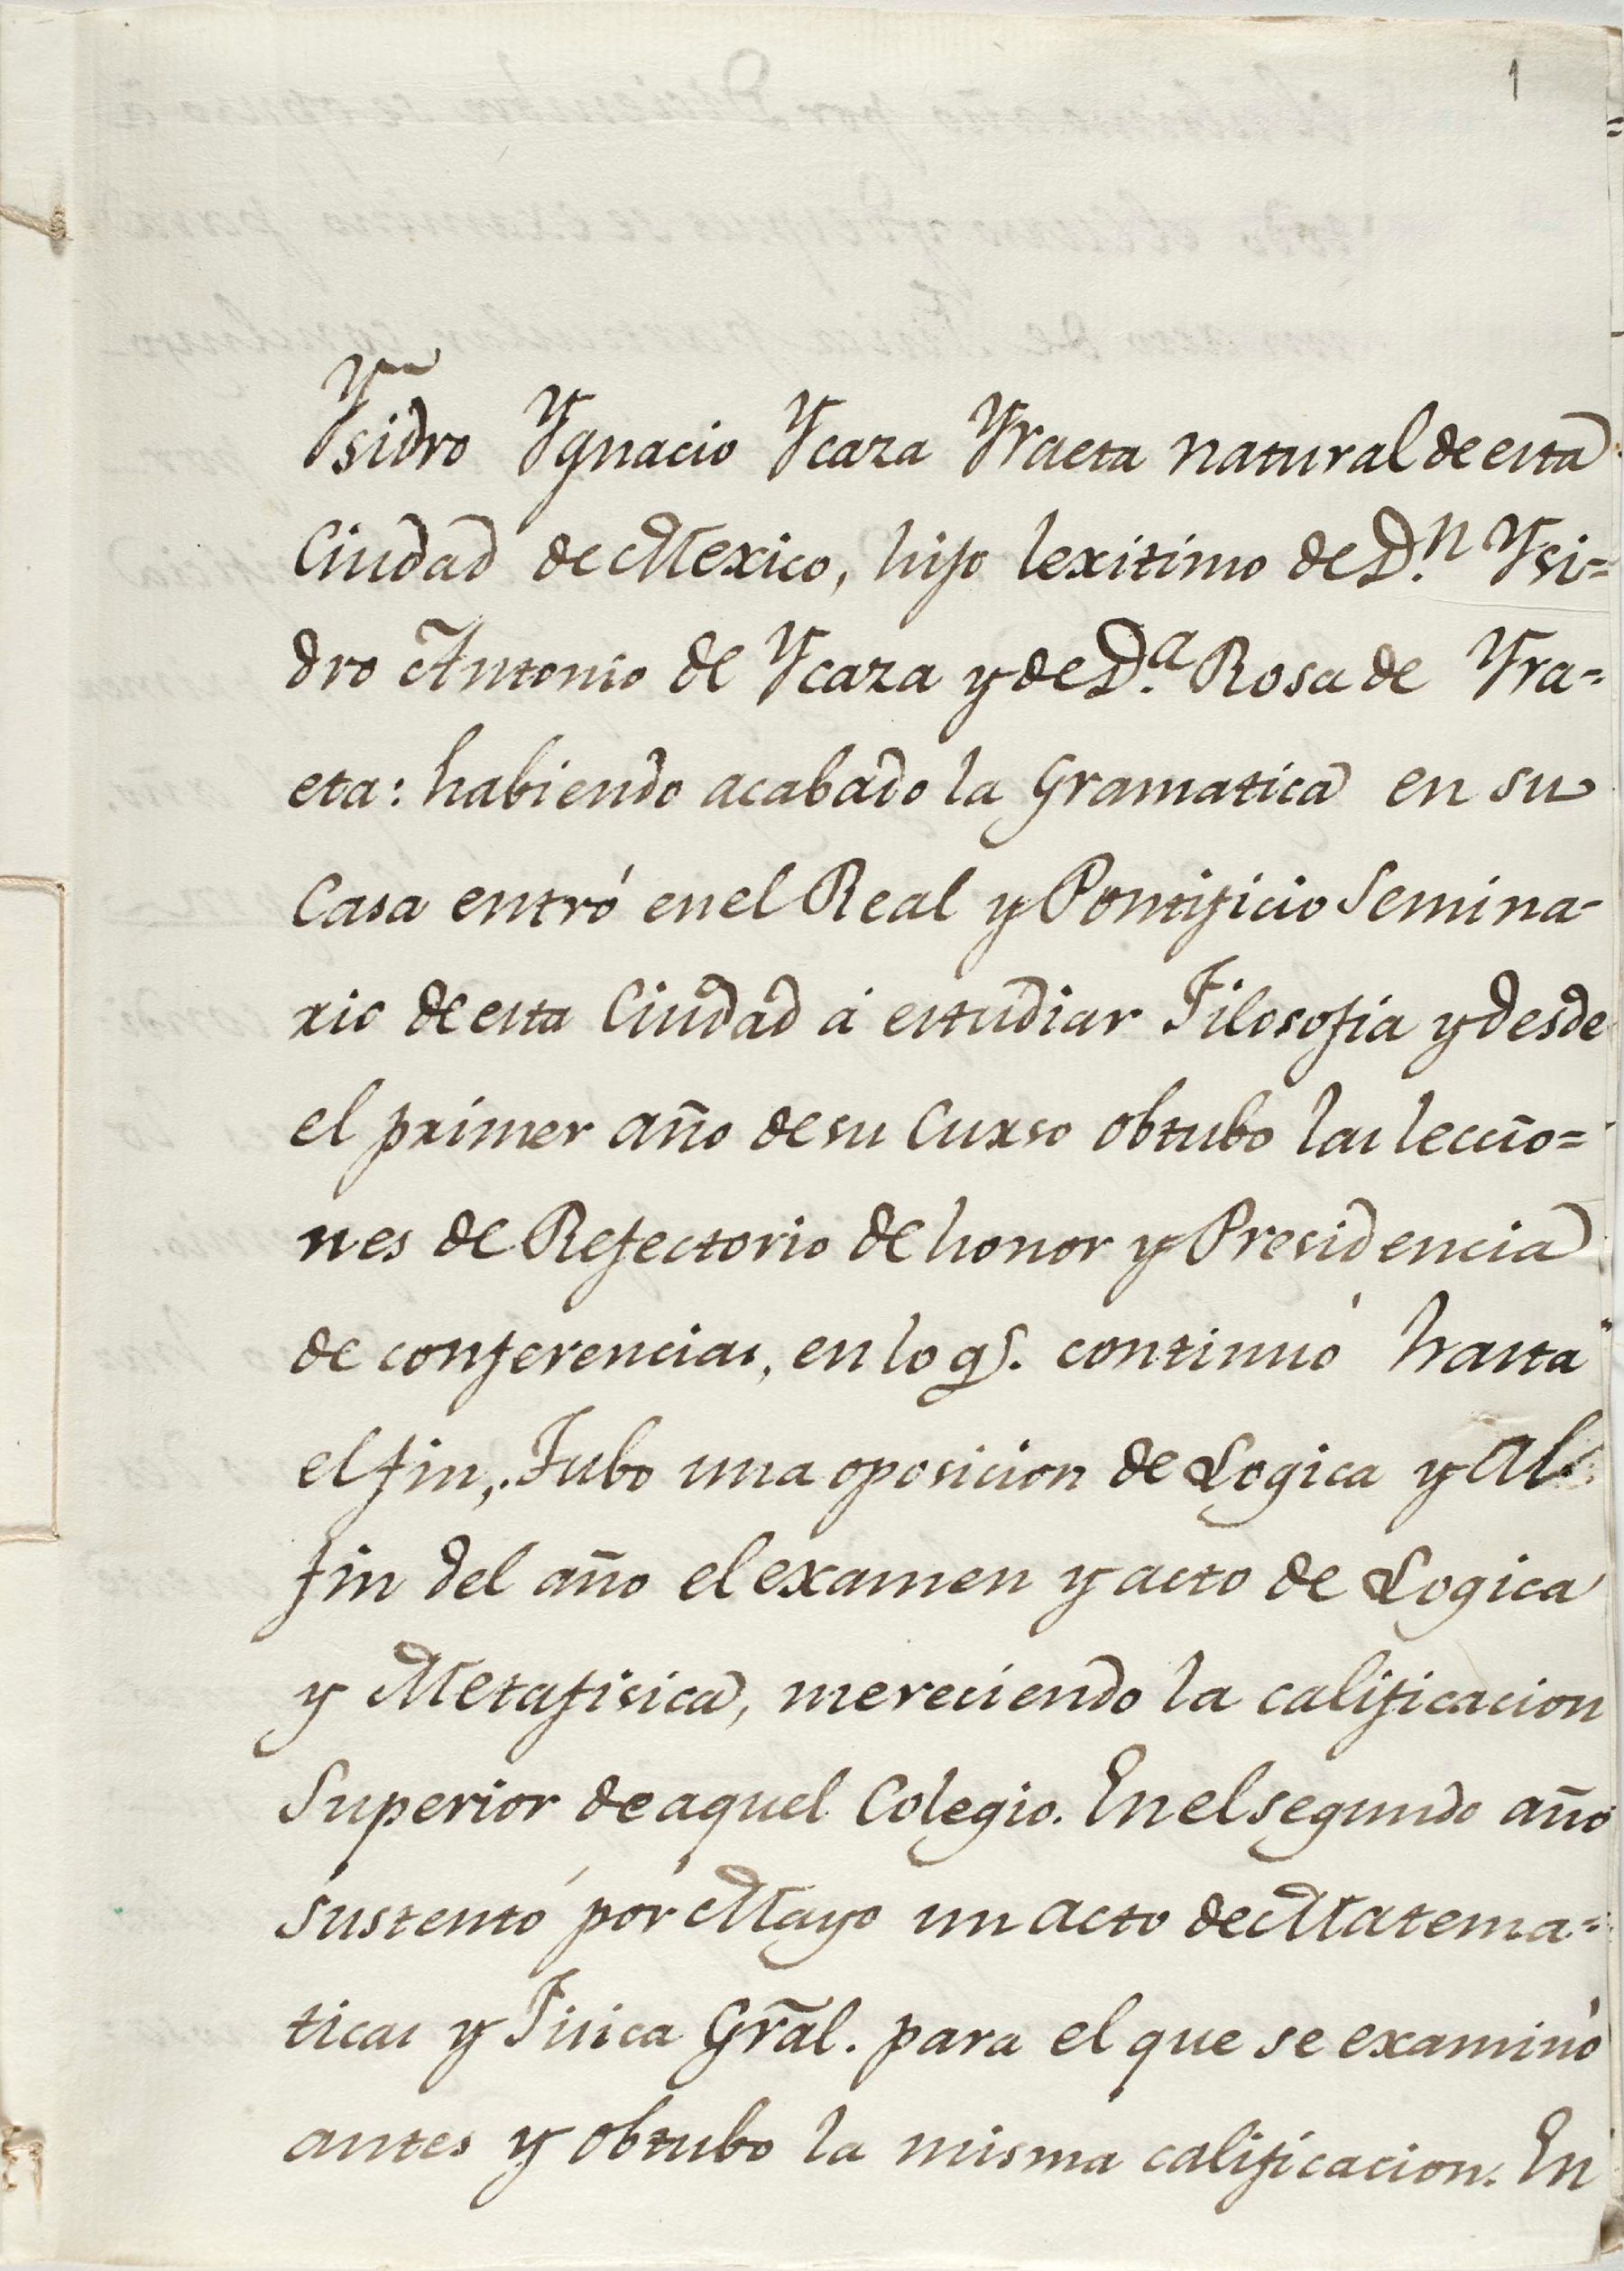 1
Ysidro Ygnacio Ycaza Yraeta natural de esta
Ciudad de Mexico, hijo lexitimo de D.n Ysi=
dro Antonio de Ycaza y de D.a Rosa de Yra=
eta: habiendo acabado la Gramatica en su
Casa entró en el Real y Pontificio Semina-
rio de esta Ciudad á estudiar Filosofia y desde
el primer año de su Curso obtubo las leccio=
nes de Refectorio de honor y Presidencia
de conferencias, en lo q.e continuó hasta
el fin,. Tubo una oposicion de Logica y al
fin del año el examen y acto de Logica
y Metafisica, mereciendo la calificacion
Superior de aquel Colegio. En el segundo año
sustentó por Mayo un acto de Matema=
ticas y Fisica Grãl. para el que se examinó
antes y obtubo la misma calificacion. En